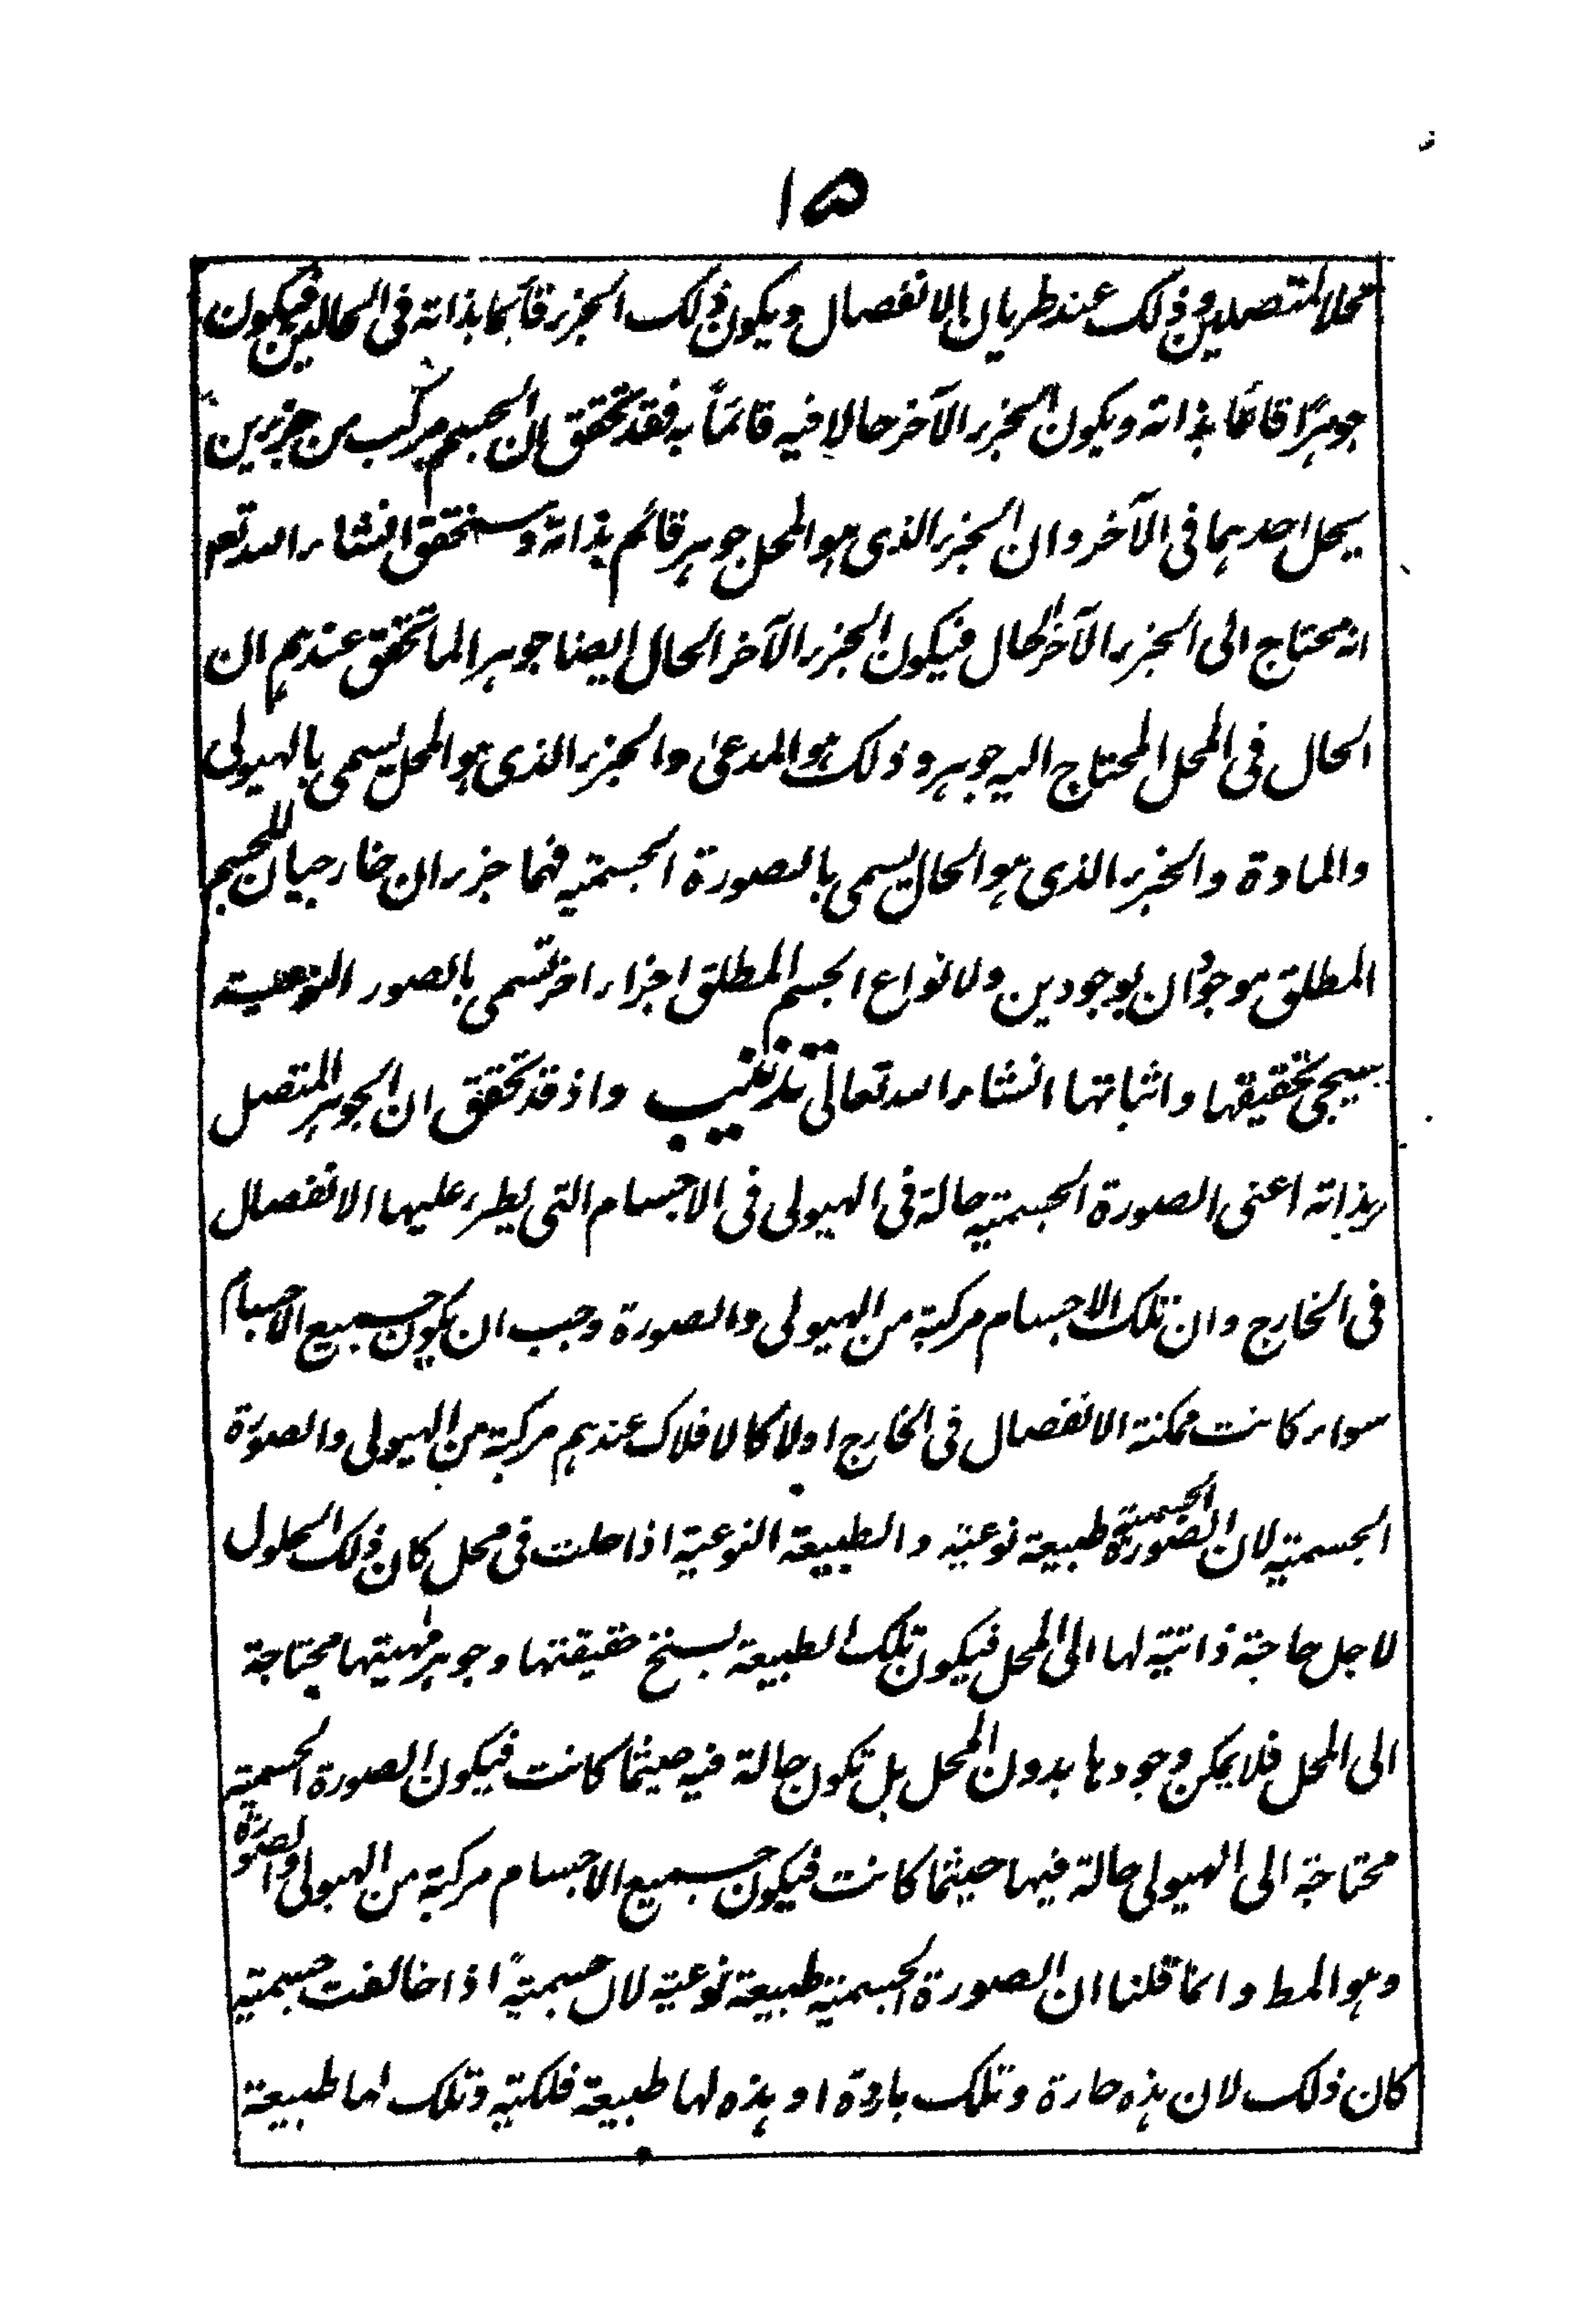 ١٥
محلا لمتصلين وذلك عند طريان الانفصال ويكون ذلك الجزء قائما بذاته فى الحالين فيكون
جوهرًا قائما بذاته ويكون الجزء الآخر حالا فيه قائمًا به فقد تحقق ان الجسم مركب من جزئين
يحل احدهما فى الآخر وان الجزء الذى هو المحل جوهر قائم بذاته وسنحقق انشاء الله تع
انه محتاج الى الجزء الآخر الحال فيكون الجزء الآخر الحال ايضا جوهرا لما تحقق عندهم ان
الحال فى المحل المحتاج اليه جوهر وذلك هو المدعى والجزء الذى هو المحل يسمى بالهيولى
والمادة والجزء الذى هو الحال يسمى بالصورة الجسمية فهما جزءان خارجيان للجسم
المطلق موجودان بوجودين ولانواع الجسم المطلق اجزاء اخر تسمى بالصور النوعية
سيجى تحقيقها واثباتها انشاء الله تعالى تذنيب واذ قد تحقق ان الجوهر المتصل
بذاته اعنى الصورة الجسمية حالة فى الهيولى فى الاجسام التى يطرء عليها الانفصال
فى الخارج وان تلك الاجسام مركبة من الهيولى والصورة وجب ان يكون جميع الاجسام
سواء كانت ممكنة الانفصال فى الخارج اولا كالافلاك عندهم مركبة من الهيولى والصورة
الجسمية لان الصورة الجسمية طبيعة نوعية والطبيعة النوعية اذا حلت فى محل كان ذلك الحلول
لاجل حاجة ذاتية لها الى المحل فيكون تلك الطبيعة بسنخ حقيقتها وجوهر مهيتها محتاجة
الى المحل فلا يمكن وجودها بدون المحل بل تكون حالة فيه حيثما كانت فيكون الصورة الجسمية
محتاجة الى الهيولى حالة فيها حيثما كانت فيكون جميع الاجسام مركبة من الهيولى والصورة
وهو المط وانما قلنا ان الصورة الجسمية طبيعة نوعية لان جسمية اذا خالفت جسمية
كان ذلك لان هذه حارة وتلك باردة او هذه لها طبيعة فلكية وتلك لها طبيعة